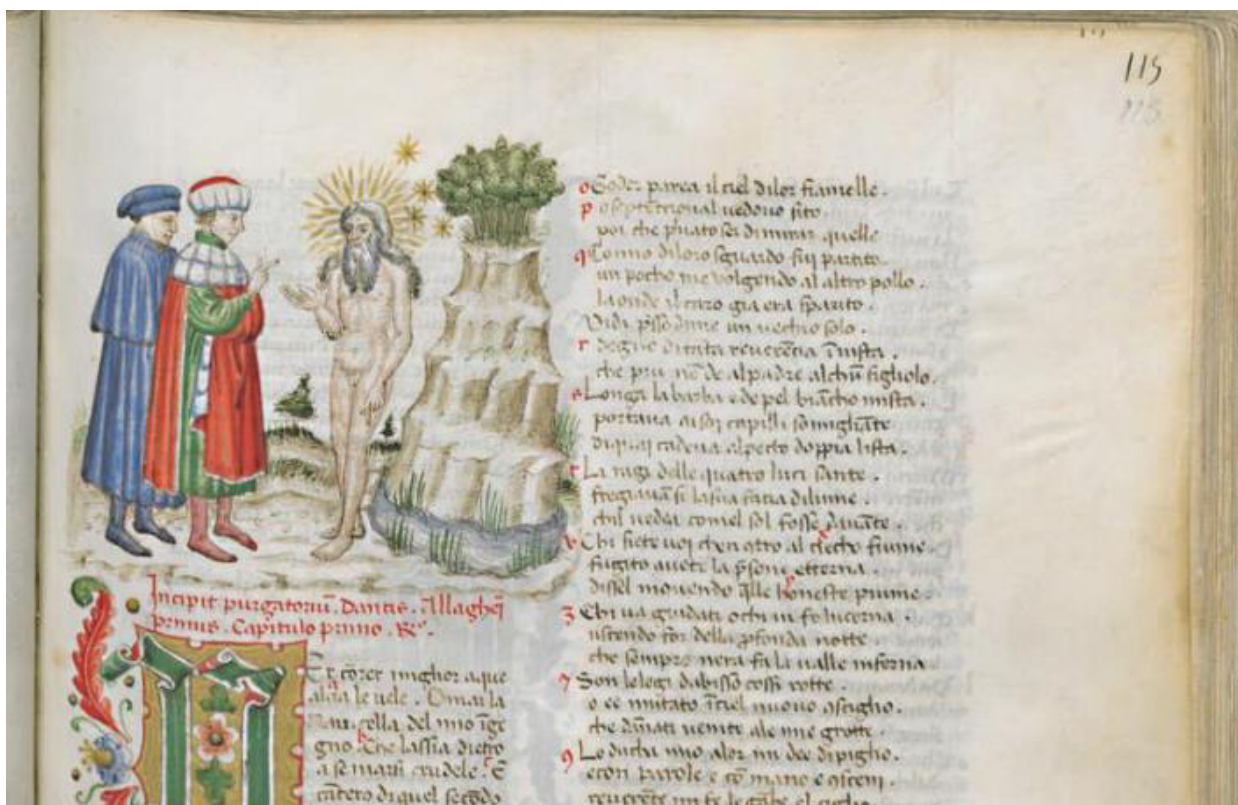 115
115
Incipit purgatoriũ. Dantis. Allagherÿ
primus. Capitulo primo. Rᵒ.
Er corer miglior aque
alza le uele. Omai la
Naui cella. del mio ige
gno. Che lassia dietro
a se mar si crudele. E
cãtero di quel secõdo
Goder parea il ciel di lor fiamelle.
o septẽtrional uedouo sito
poi che priuato sei di mirar quelle
Como di loro sguardo fuj partito.
un pocho me uolgendo al altro pollo.
la onde il caro gia era sparito.
Vidi p̃sso di me un uechio solo.
degno di tãta reuerẽcia ĩ uista.
che piu nõ de al padre alchũ figliolo.
Longa la barba e de pel biãcho mista.
portaua ai soj capilli somigliãte
di quaj cadeua al pecto doppia lista.
La ragi delle quatro luci sante.
fregiauã si la sua facia di lume.
chil uedea comel sol fosse dauãte.
Chi siete uoi chen cõtro al ciecho fiume.
fugito aueti la p̃sone etterna.
dissel mouendo q̃lle honeste piume.
Chi ua guidati o chi ui fo lucerna.
uscendo for della p̃fonda notte.
che sempre nera fa la ualle inferna
Son le legi dabisso cossi rotte.
o ee mutato ĩ ciel nuouo cõsiglio.
che dãnati uenite ale mie grotte.
Lo ducha mio alor mi dee di piglio.
e con parole e cõ mano e cõ ceni.
reuerẽte mi fe le gãbe el ciglio